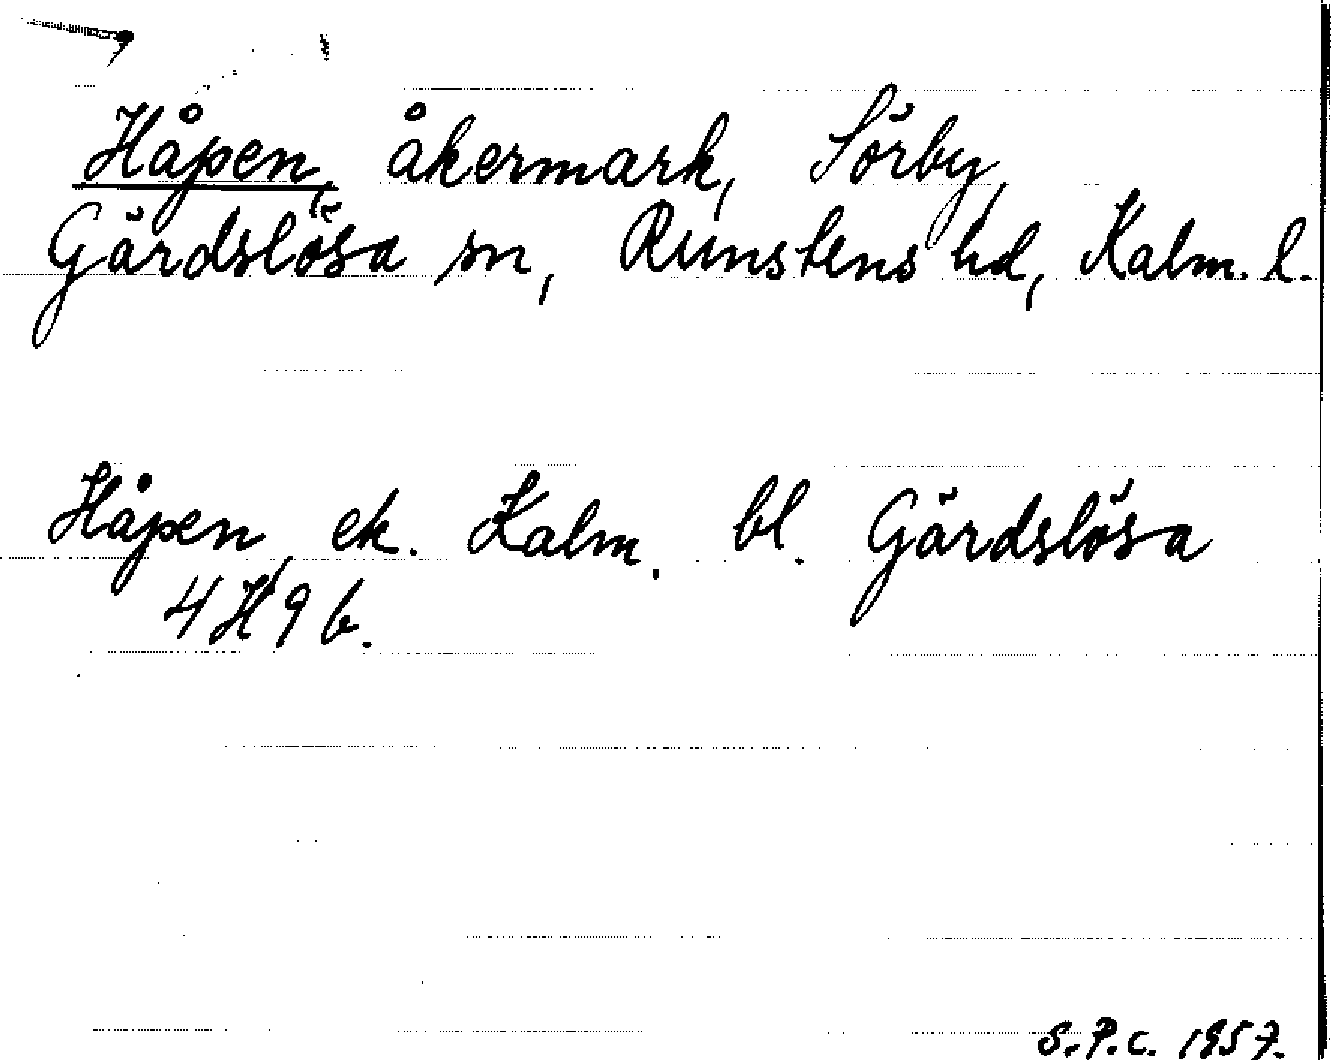 Håpen, åkermark, Sörby,
Gärdslösa sn, Runstens hd, Kalm. l.
Håpen, ek. Kalm. bl. Gärdslösa
4H9b.
S.P.C. 1957.